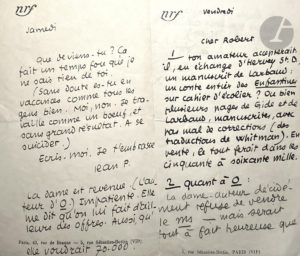 nrf
Samedi
Que deviens-tu ? Ça
fait un temps fou que je
ne sais rien de toi.
(Sans doute es-tu en
vacances comme tous les
gens bien. Moi, non. Je tra-
vaille comme un bœuf, et
sans grand résultat. A se
suicider.)
Ecris-moi. Je t'embrasse
Jean P.
La dame est revenue (L'au-
teur d'O.) Impatiente. Elle
me dit qu'on lui fait d'ail-
leurs des offres. Aussi, qu'
elle voudrait 70.000.
Paris, 43, rue de Beaune — 5, rue Sébastien-Bottin (VIIe)
nrf
Vendredi
cher Robert
1 ton amateur accepterait
il, en échange d'Hervey St D.
un manuscrit de Larbaud:
un conte entier des Enfantines
sur cahier d'écolier ? Ou bien
plusieurs pages de Gide et de
Larbaud, manuscrites, avec
pas mal de corrections (des
traductions de Whitman). En
vente, là tout irait dans les
cinquante à soixante mille.
2 Quant à O:
la dame-auteur décidé-
ment refuse de vendre
le ms — mais serait
tout à fait heureuse que
5, rue Sébastien-Bottin, PARIS (VIIe)